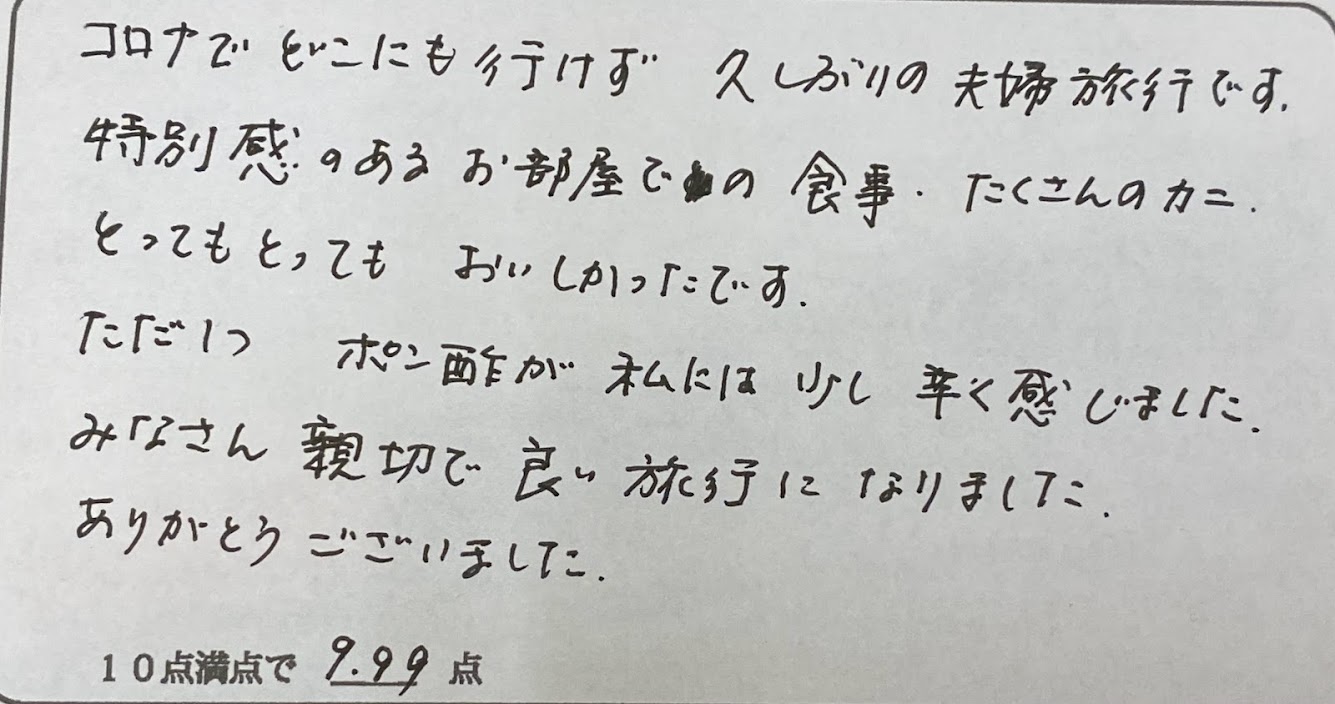 コロナで どこにも行けず 久しぶりの 夫婦旅行です.
特別感のある お部屋での 食事. たくさんのカニ.
とってもとっても おいしかったです.
ただ1つ ポン酢が 私には 少し 辛く感じました.
みなさん 親切で 良い 旅行に なりました.
ありがとう ございました.
10点満点で 9.99 点